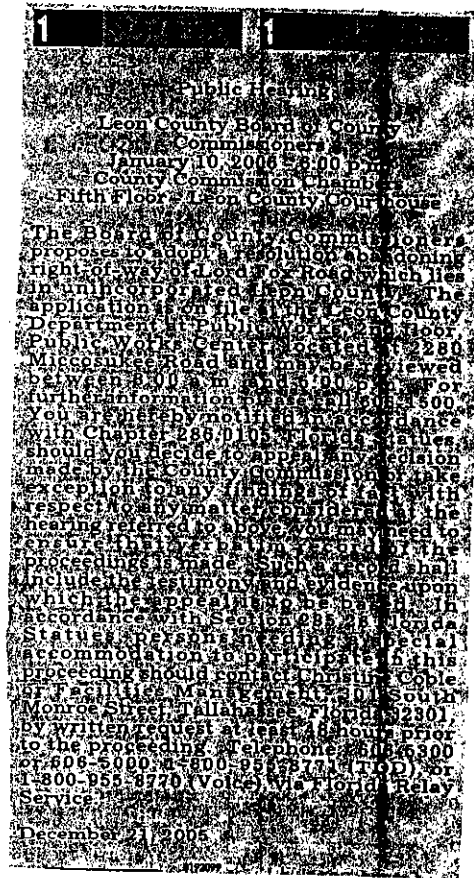 1 1
Public Hearing
Leon County Board of County
Commissioners
January 10, 2006 - 6:00 p.m.
County Commission Chambers
Fifth Floor - Leon County Courthouse
The Board of County Commissioners
proposes to adopt a resolution abandoning
right-of-way of Lord Fox Road which lies
in unincorporated Leon County. The
application is on file at the Leon County
Department of Public Works, floor,
Public Works Center, located at 2280
Miccosukee Road and may be reviewed
between 8:00 a.m. and 5:00 p.m. For
further information please call 1500.
You are hereby notified in accordance
with Chapter 286.0105, Florida Statues,
should you decide to appeal any decision
made by the County Commission or take
exception to any findings of fact with
respect to any matter considered at the
hearing referred to above, you may need to
ensure that verbatim record of the
proceedings is made. Such a record shall
include the testimony and evidence upon
which the appeal is to be based. In
accordance with Section Florida
Statues, persons needing a special
accommodation to participate in this
proceeding should contact Christine Coble
or Facilities Management, 301 South
Monroe Street, Tallahassee, Florida 32301,
by written request at least 48 hours prior
to the proceeding. Telephone: 606-5300
or 606-5000, 1-800-955-8771 (TDD), or
1-800-955-8770 (Voice), via Florida Relay
Service.
December 21, 2005